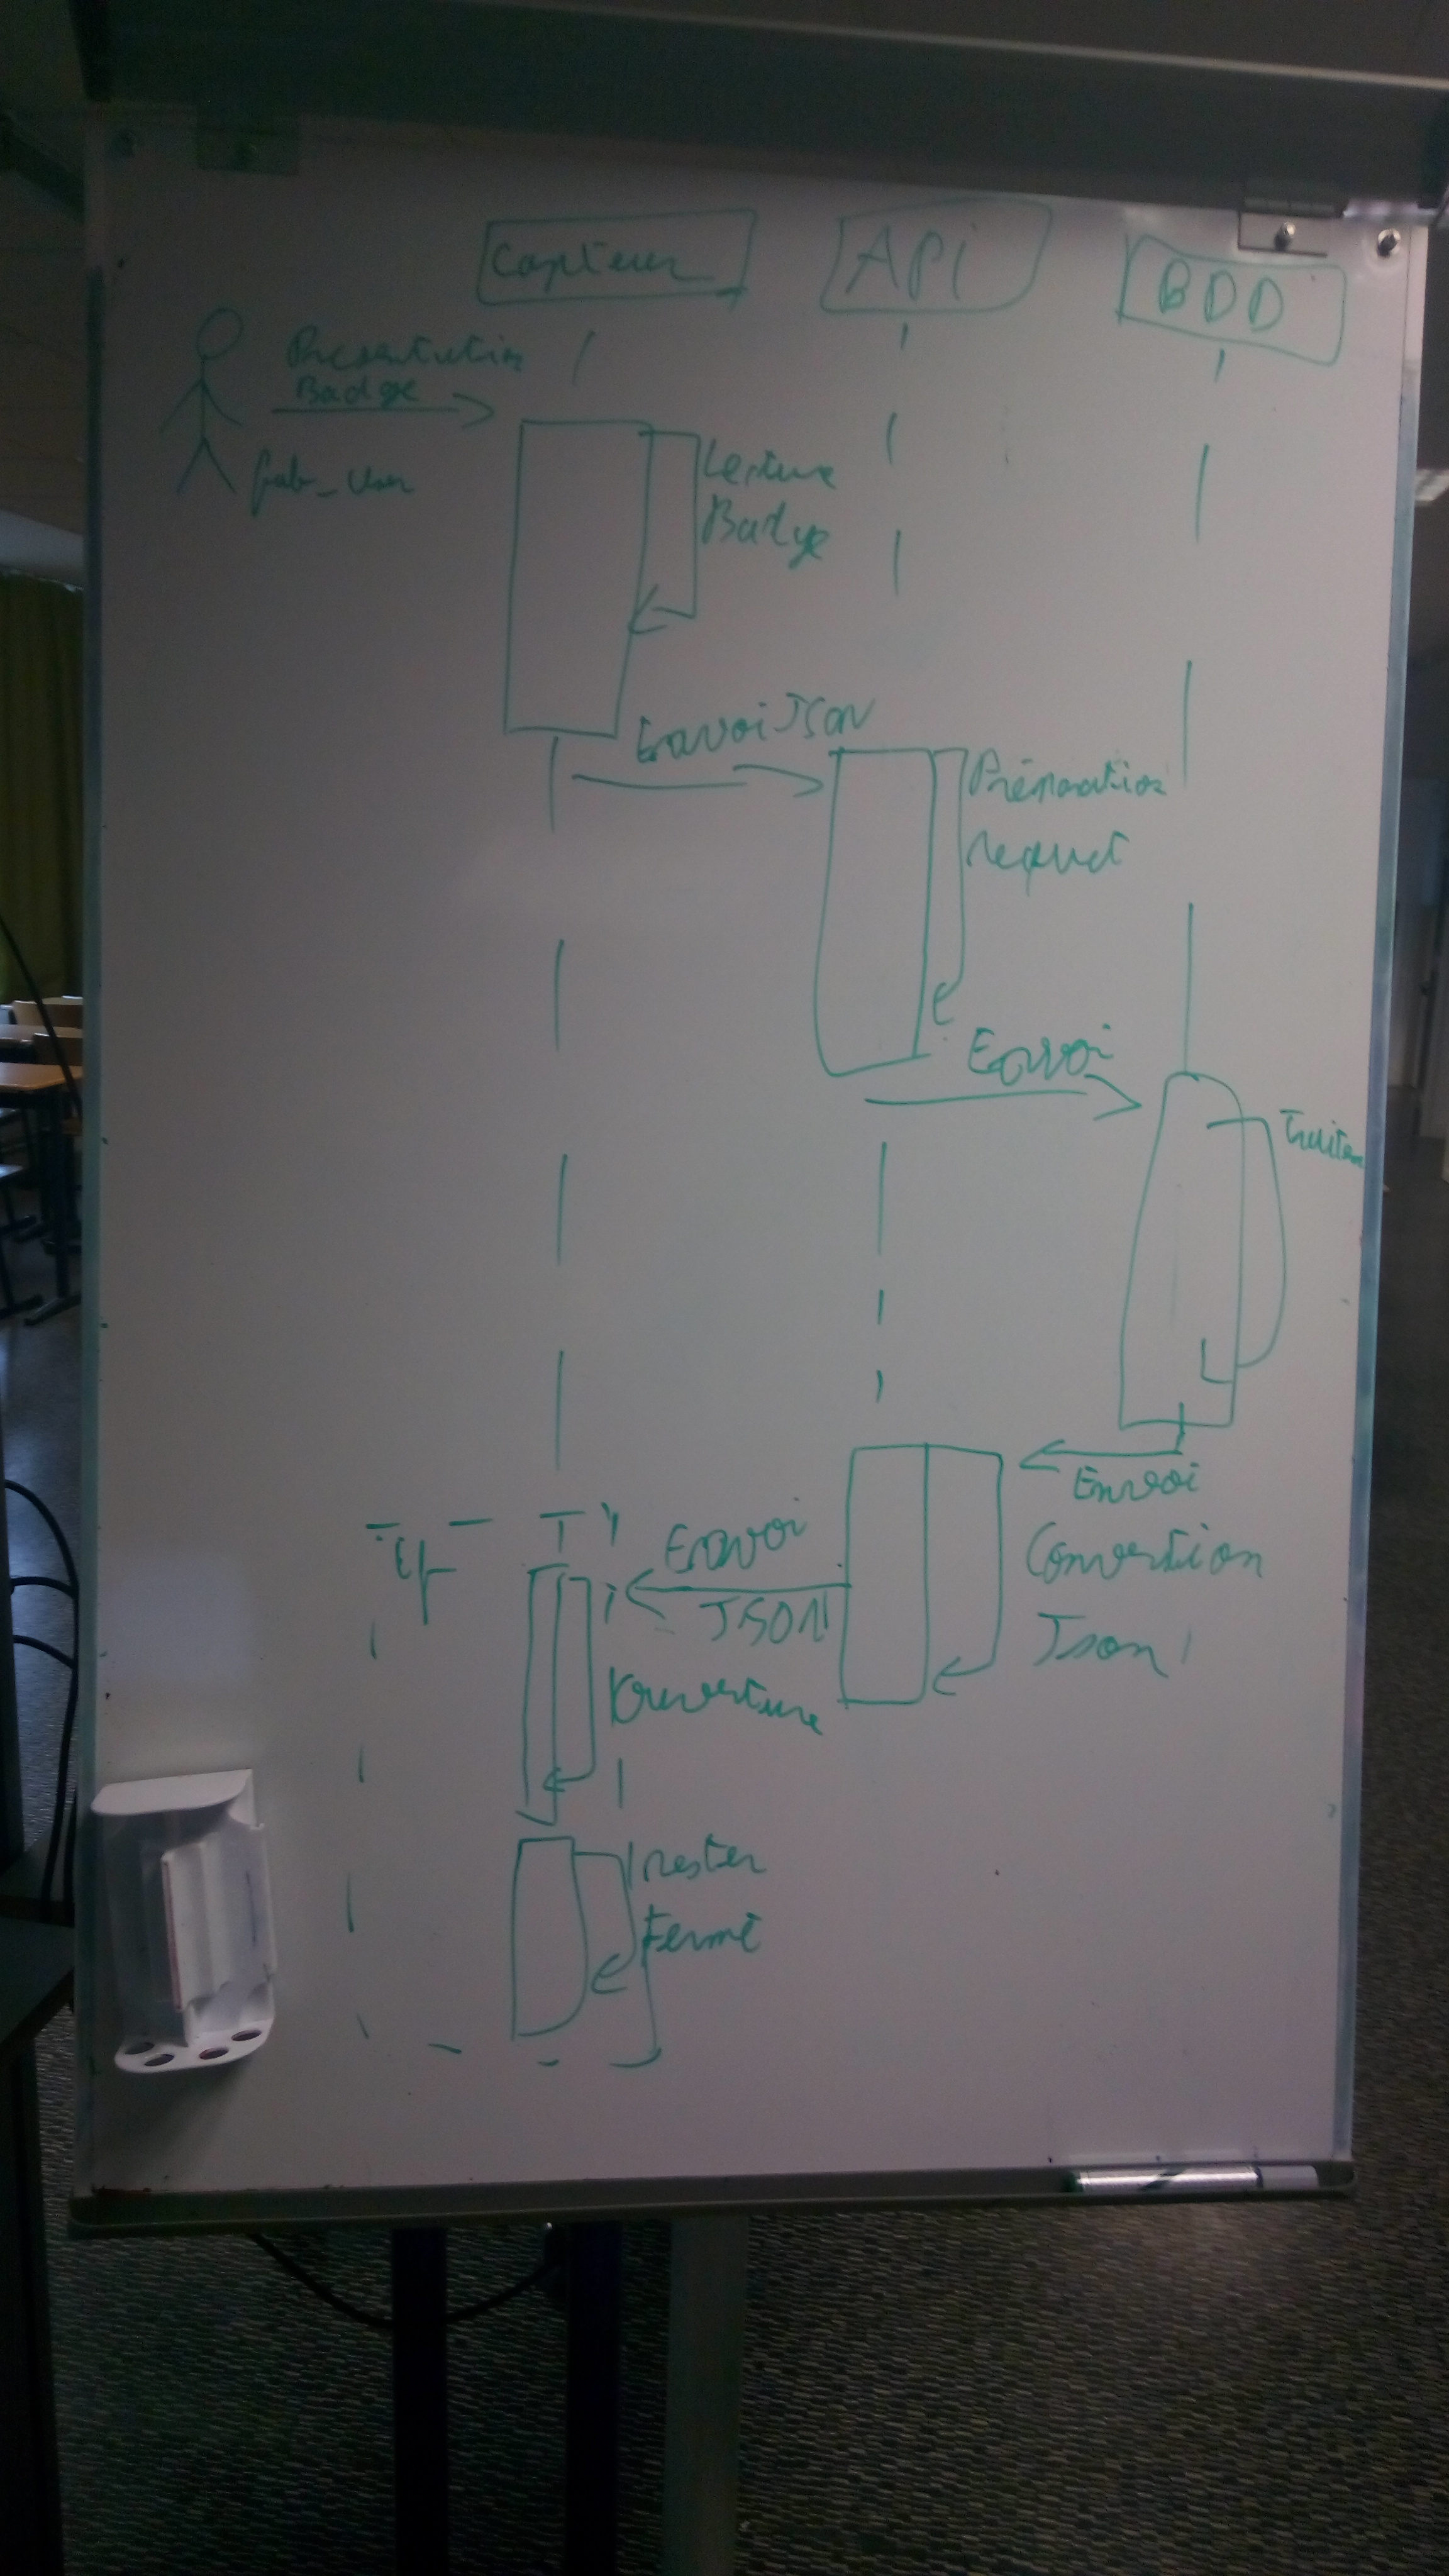 Capteur
API
BDD
Presentation
Badge
fab_User
Lecture
Badge
Envoi JSON
Préparation
request
Envoi
Envoi
Envoi
JSON
Convertion
Json
Ouverture
rester
Fermé